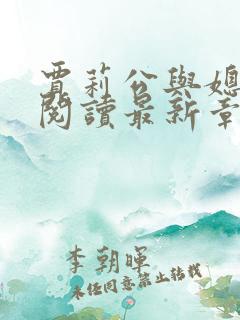 賈莉公與媳
閱讀最新章
李朝暉
未经同意禁止转载